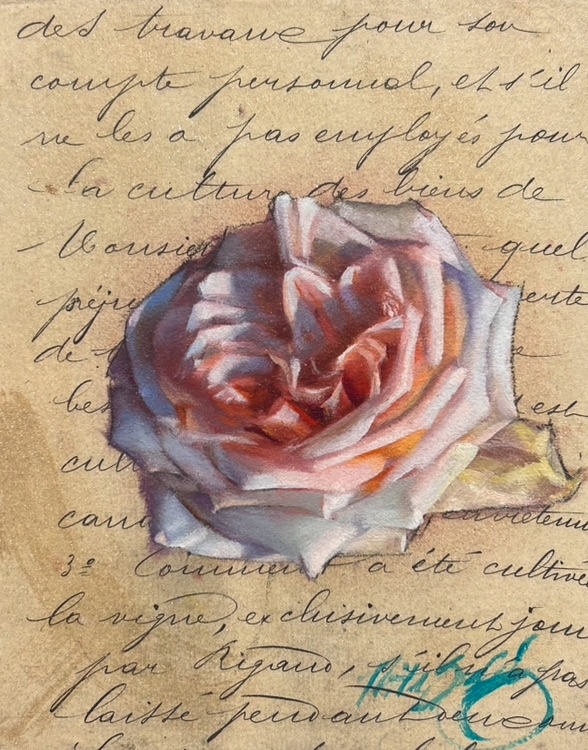 des travaux pour son
compte personnel, et s'il
ne les a pas employés pour
la culture des biens de
Monsie quel
préju erte
de e
bes est
cult
cara entretenu
3º Comment a été cultivé
la vigne, exclusivement
par Rigaud, s'il n'a pas
laissé pendant